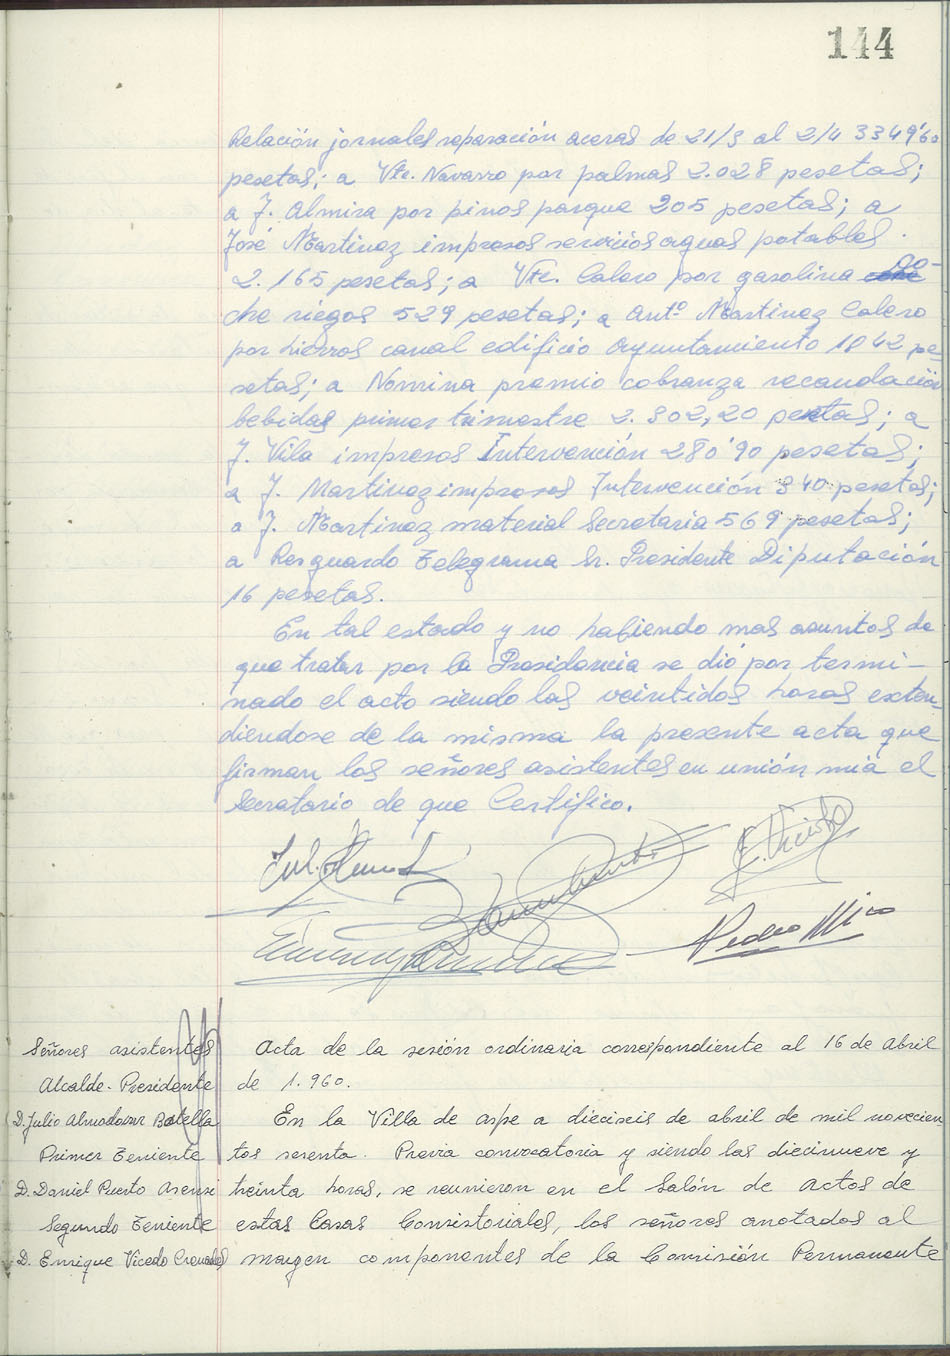 144
Relación jornales reparación aceras de 21/3 al 2/4 3349'60
pesetas; a Vte. Navarro por palmas 2.028 pesetas;
a J. Almira por pinos parque 205 pesetas; a
José Martinez impresos servicios aguas potables.
2.165 pesetas; a Vte. Calero por gasolina co-
che riegos 529 pesetas; a Antº Martinez Calero
por hierros canal edificio Ayuntamiento 1042 pe-
setas; a Nomina premio cobranza recaudación
bebidas primer trimestre 2.302,20 pesetas; a
J. Vila impresos Intervención 280'90 pesetas;
a J. Martinez impresos Intervención 340 pesetas;
a J. Martinez material Secretaria 569 pesetas;
a Resguardo Telegrama Sr. Presidente Diputación
16 pesetas.
En tal estado y no habiendo mas asuntos de
que tratar por la Presidencia se dió por termi-
nado el acto siendo las veintidos horas exten-
diendose de la misma la presente acta que
firman los señores asistentes en unión mia el
Secretario de que Certifico.
E. Vicedo
Pedro Mico
Señores asistentes
Alcalde-Presidente
D. Julio Almodovar Botella
Primer Teniente
D. Daniel Puerto Asensi
Segundo Teniente
D. Enrique Vicedo
Acta de la sesión ordinaria correspondiente al 16 de Abril
de 1.960.
En la Villa de aspe a dieciseis de abril de mil novecien
tos sesenta. Previa convocatoria y siendo las diecinueve y
treinta horas, se reunieron en el Salón de Actos de
estas Casas Consistoriales, los señores anotados al
margen componentes de la Comisión Permanente